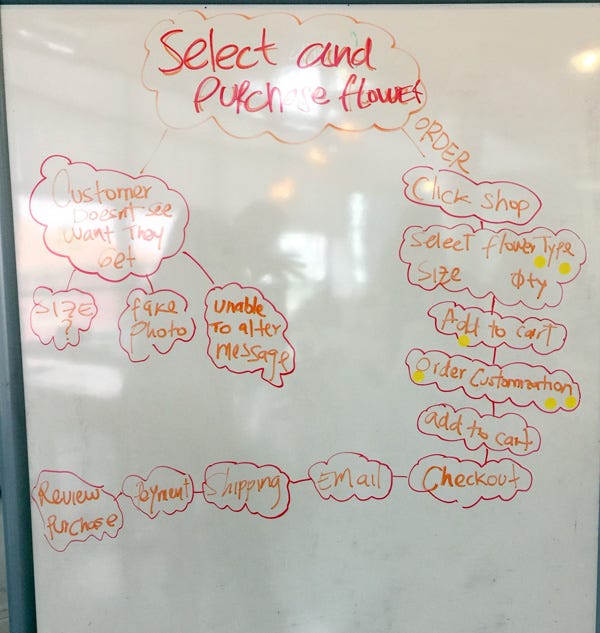 Select and
Purchase flower
ORDER
Customer
Doesn't see
want They
Get
SIZE
?
fake
photo
unable
To alter
message
Click Shop
Select flower Type
SIZE Qty
Add to cart
Order Customization
add to cart
Checkout
EMail
Shipping
Payment
Review
Purchase